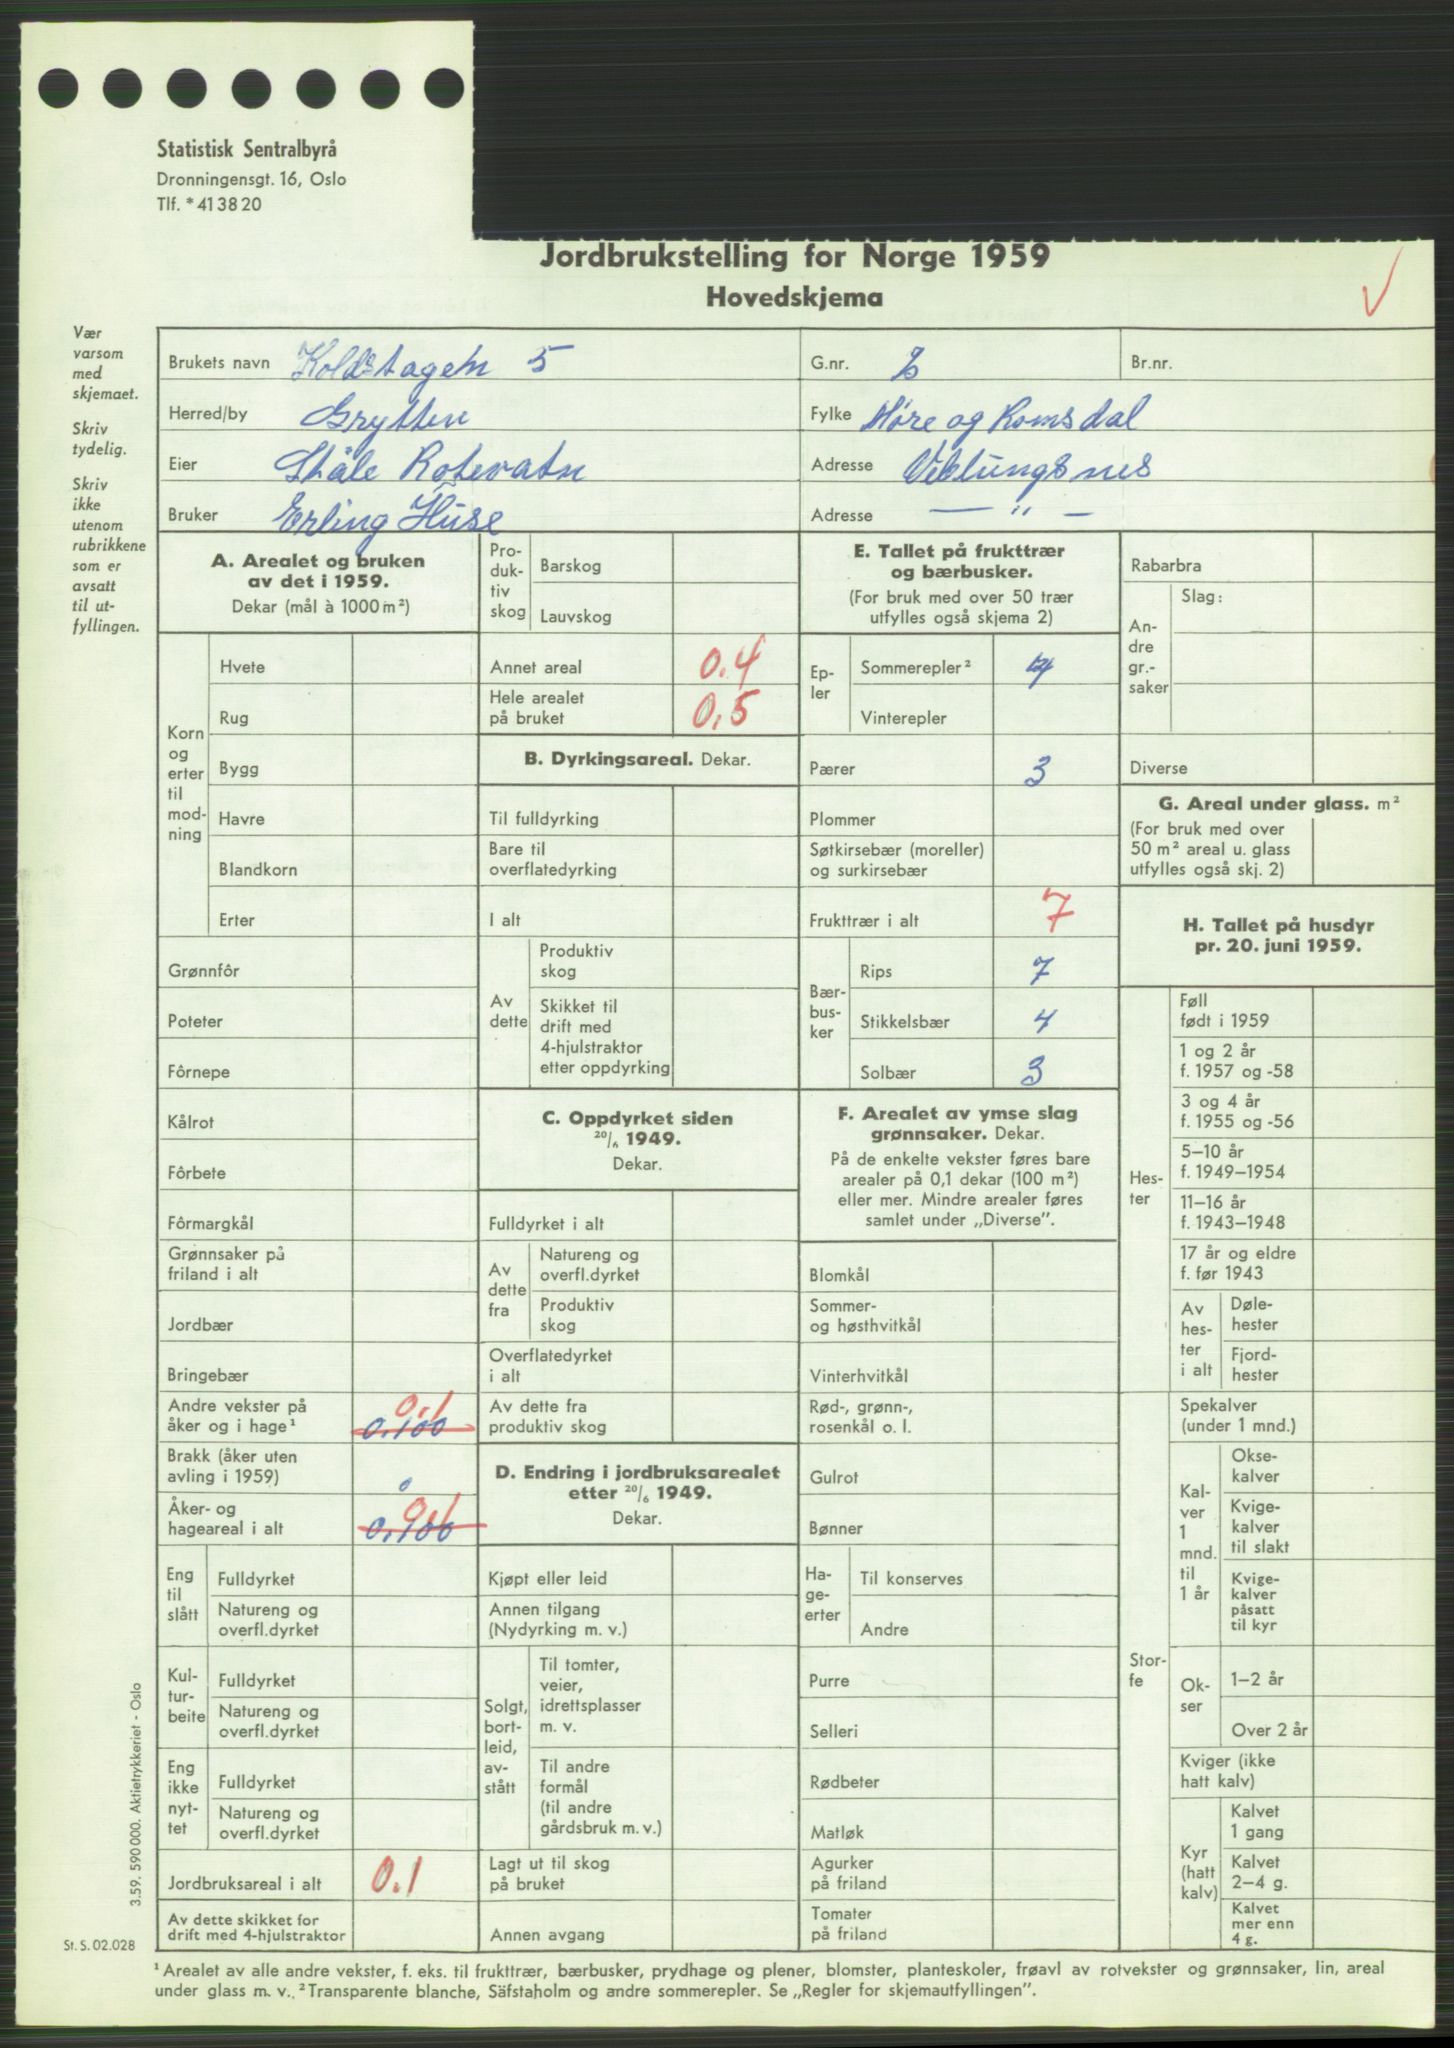 Statistisk Sentralbyrå
Dronningensgt. 16, Oslo
Tlf. * 41 38 20
Jordbrukstelling for Norge 1959
Hovedskjema
Vær
varsom
med
skjemaet.
Skriv
tydelig.
Skriv
ikke
utenom
rubrikkene
som er
avsatt
til ut-
fyllingen.
Brukets navn 5
G.nr.
Br.nr.
Herred/by Grytten
Fylke Møre og Romsdal
Eier Ståle Rotevatn
Adresse Veblungsnes
Bruker Erling Huse
Adresse — " —
A. Arealet og bruken
av det i 1959.
Dekar (mål à 1000 m²)
Korn
og
erter
til
mod-
ning
Hvete
Rug
Bygg
Havre
Blandkorn
Erter
Grønnfôr
Poteter
Fôrnepe
Kålrot
Fôrbete
Fôrmargkål
Grønnsaker på
friland i alt
Jordbær
Bringebær
Andre vekster på
åker og i hage¹ 0.1 0.100
Brakk (åker uten
avling i 1959)
Åker- og
hageareal i alt 0.1 0.100
Eng
til
slått
Fulldyrket
Natureng og
overfl.dyrket
Kul-
tur-
beite
Fulldyrket
Natureng og
overfl.dyrket
Eng
ikke
nyt-
tet
Fulldyrket
Natureng og
overfl.dyrket
Jordbruksareal i alt 0.1
Av dette skikket for
drift med 4-hjulstraktor
Pro-
duk-
tiv
skog
Barskog
Lauvskog
Annet areal 0.4
Hele arealet
på bruket 0,5
B. Dyrkingsareal. Dekar.
Til fulldyrking
Bare til
overflatedyrking
I alt
Av
dette
Produktiv
skog
Skikket til
drift med
4-hjulstraktor
etter oppdyrking
C. Oppdyrket siden
20/6 1949.
Dekar.
Fulldyrket i alt
Av
dette
fra
Natureng og
overfl.dyrket
Produktiv
skog
Overflatedyrket
i alt
Av dette fra
produktiv skog
D. Endring i jordbruksarealet
etter 20/6 1949.
Dekar.
Kjøpt eller leid
Annen tilgang
(Nydyrking m. v.)
Solgt,
bort-
leid,
av-
stått
Til tomter,
veier,
idrettsplasser
m. v.
Til andre
formål
(til andre
gårdsbruk m. v.)
Lagt ut til skog
på bruket
Annen avgang
E. Tallet på frukttrær
og bærbusker.
(For bruk med over 50 trær
utfylles også skjema 2)
Ep-
ler
Sommerepler² 4
Vinterepler
Pærer 3
Plommer
Søtkirsebær (moreller)
og surkirsebær
Frukttrær i alt 7
Bær-
bus-
ker
Rips 7
Stikkelsbær 4
Solbær 3
F. Arealet av ymse slag
grønnsaker. Dekar.
På de enkelte vekster føres bare
arealer på 0,1 dekar (100 m²)
eller mer. Mindre arealer føres
samlet under „Diverse".
Blomkål
Sommer-
og høsthvitkål
Vinterhvitkål
Rød-, grønn-,
rosenkål o. l.
Gulrot
Bønner
Ha-
ge-
erter
Til konserves
Andre
Purre
Selleri
Rødbeter
Matløk
Agurker
på friland
Tomater
på friland
Rabarbra
An-
dre
gr.-
saker
Slag:
Diverse
G. Areal under glass. m²
(For bruk med over
50 m² areal u. glass
utfylles også skj. 2)
H. Tallet på husdyr
pr. 20. juni 1959.
Hes-
ter
Føll
født i 1959
1 og 2 år
f. 1957 og -58
3 og 4 år
f. 1955 og -56
5–10 år
f. 1949–1954
11–16 år
f. 1943–1948
17 år og eldre
f. før 1943
Av
hes-
ter
i alt
Døle-
hester
Fjord-
hester
Stor-
fe
Spekalver
(under 1 mnd.)
Kal-
ver
1
mnd.
til
1 år
Okse-
kalver
Kvige-
kalver
til slakt
Kvige-
kalver
påsatt
til kyr
Ok-
ser
1–2 år
Over 2 år
Kviger (ikke
hatt kalv)
Kyr
(hatt
kalv)
Kalvet
1 gang
Kalvet
2–4 g.
Kalvet
mer enn
4 g.
3.59. 590 000. Aktietrykkeriet - Oslo
St. S. 02.028
¹ Arealet av alle andre vekster, f. eks. til frukttrær, bærbusker, prydhage og plener, blomster, planteskoler, frøavl av rotvekster og grønnsaker, lin, areal
under glass m. v. ² Transparente blanche, Säfstaholm og andre sommerepler. Se „Regler for skjemautfyllingen".